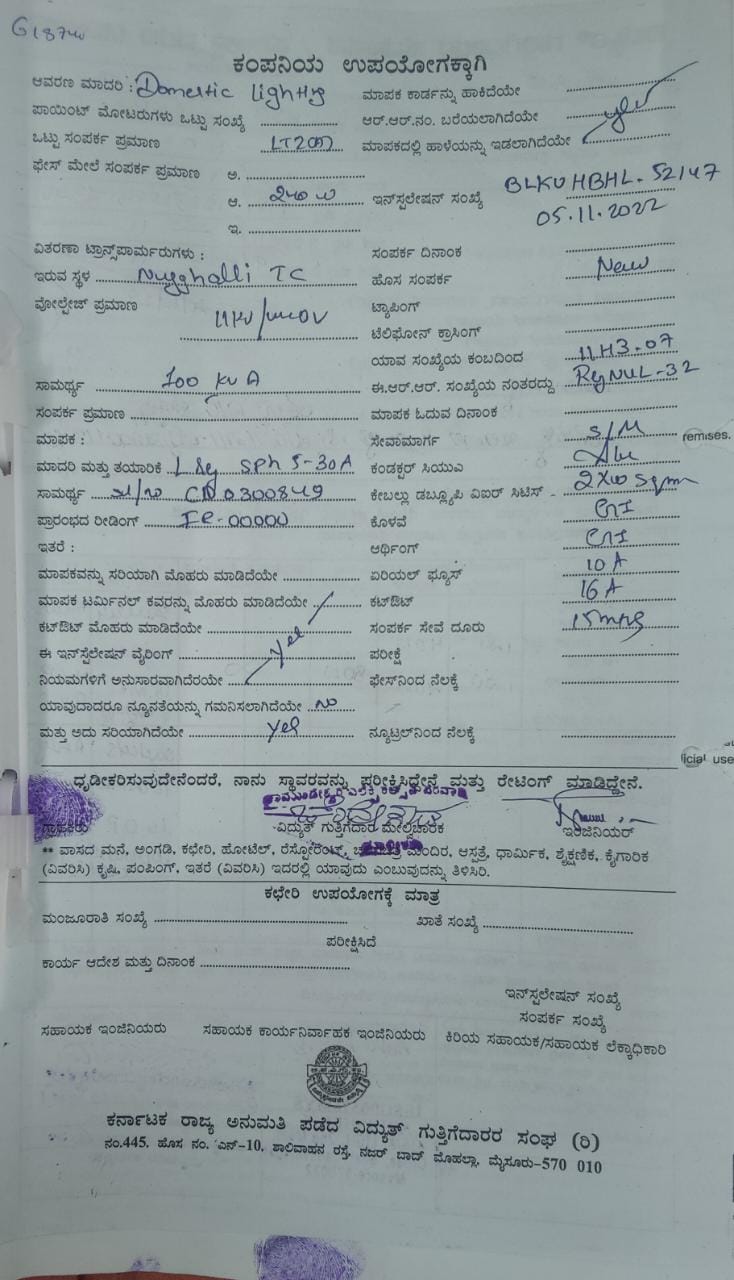 G1874w
ಕಂಪನಿಯ ಉಪಯೋಗಕ್ಕಾಗಿ
ಆವರಣ ಮಾದರಿ : Domestic Lighting ಮಾಪಕ ಕಾರ್ಡನ್ನು ಹಾಕಿದೆಯೇ
ಪಾಯಿಂಟ್ ಮೋಟರುಗಳು ಒಟ್ಟು ಸಂಖ್ಯೆ ಆರ್.ಆರ್.ನಂ. ಬರೆಯಲಾಗಿದೆಯೇ yes
ಒಟ್ಟು ಸಂಪರ್ಕ ಪ್ರಮಾಣ ಮಾಪಕದಲ್ಲಿ ಹಾಳೆಯನ್ನು ಇಡಲಾಗಿದೆಯೇ
ಫೇಸ್ ಮೇಲೆ ಸಂಪರ್ಕ ಪ್ರಮಾಣ ಅ.
ಆ. 240 W ಇನ್‌ಸ್ಟಲೇಷನ್ ಸಂಖ್ಯೆ BLKVHBHL-52147
ಇ. 05.11.2022
ವಿತರಣಾ ಟ್ರಾನ್ಸ್‌ಪಾರ್ಮರುಗಳು : ಸಂಪರ್ಕ ದಿನಾಂಕ
ಇರುವ ಸ್ಥಳ Nugghalli TC ಹೊಸ ಸಂಪರ್ಕ New
ವೋಲ್ಟೇಜ್ ಪ್ರಮಾಣ 11KV/440V ಟ್ಯಾಪಿಂಗ್
ಟೆಲಿಫೋನ್ ಕ್ರಾಸಿಂಗ್
ಯಾವ ಸಂಖ್ಯೆಯ ಕಂಬದಿಂದ 11H3-07
ಸಾಮರ್ಥ್ಯ 100 KVA ಈ.ಆರ್.ಆರ್. ಸಂಖ್ಯೆಯ ನಂತರದ್ದು RgNUL-32
ಸಂಪರ್ಕ ಪ್ರಮಾಣ ಮಾಪಕ ಓದುವ ದಿನಾಂಕ
ಮಾಪಕ : ಸೇವಾಮಾರ್ಗ S/M remises.
ಮಾದರಿ ಮತ್ತು ತಯಾರಿಕೆ L&G SPh 5-30A ಕಂಡಕ್ಟರ್ ಸಿಯುಎ Alu
ಸಾಮರ್ಥ್ಯ Sl/no CD0300849 ಕೇಬಲ್ಲು ಡಬ್ಲ್ಯೂಪಿ ವಿಐರ್ ಸಿಟಿಸ್ -
ಪ್ರಾರಂಭದ ರೀಡಿಂಗ್ IR-00000 ಕೊಳವೆ GI
ಇತರೆ : ಆರ್ಥಿಂಗ್ GI
ಮಾಪಕವನ್ನು ಸರಿಯಾಗಿ ಮೊಹರು ಮಾಡಿದೆಯೇ ಏರಿಯಲ್ ಫ್ಯೂಸ್ 10 A
ಮಾಪಕ ಟರ್ಮಿನಲ್ ಕವರನ್ನು ಮೊಹರು ಮಾಡಿದೆಯೇ ಕಟ್‌ಔಟ್ 16 A
ಕಟ್‌ಔಟ್ ಮೊಹರು ಮಾಡಿದೆಯೇ ಸಂಪರ್ಕ ಸೇವೆ ದೂರು 15mtrs
ಈ ಇನ್‌ಸ್ಟೆಲೇಷನ್ ವೈರಿಂಗ್ yes ಪರೀಕ್ಷೆ
ನಿಯಮಗಳಿಗೆ ಅನುಸಾರವಾಗಿದೆರಯೇ ಫೇಸ್‌ನಿಂದ ನೆಲಕ್ಕೆ
ಯಾವುದಾದರೂ ನ್ಯೂನತೆಯನ್ನು ಗಮನಿಸಲಾಗಿದೆಯೇ NO
ಮತ್ತು ಅದು ಸರಿಯಾಗಿದೆಯೇ yes ನ್ಯೂಟ್ರಲ್‌ನಿಂದ ನೆಲಕ್ಕೆ
icial use
ಧೃಡೀಕರಿಸುವುದೇನೆಂದರೆ, ನಾನು ಸ್ಥಾವರವನ್ನು ಪರೀಕ್ಷಿಸಿದ್ದೇನೆ ಮತ್ತು ರೇಟಿಂಗ್ ಮಾಡಿದ್ದೇನೆ.
ಗ್ರಾಹಕರು ವಿದ್ಯುತ್ ಗುತ್ತಿಗೆದಾರ ಮೇಲ್ವಿಚಾರಕ ಇಂಜಿನಿಯರ್
** ವಾಸದ ಮನೆ, ಅಂಗಡಿ, ಕಛೇರಿ, ಹೋಟೆಲ್, ರೆಸ್ಟೋರೆಂಟ್, ಮಂದಿರ, ಆಸ್ಪತ್ರೆ, ಧಾರ್ಮಿಕ, ಶೈಕ್ಷಣಿಕ, ಕೈಗಾರಿಕ
(ವಿವರಿಸಿ) ಕೃಷಿ, ಪಂಪಿಂಗ್, ಇತರೆ (ವಿವರಿಸಿ) ಇದರಲ್ಲಿ ಯಾವುದು ಎಂಬುವುದನ್ನು ತಿಳಿಸಿರಿ.
ಕಛೇರಿ ಉಪಯೋಗಕ್ಕೆ ಮಾತ್ರ
ಮಂಜೂರಾತಿ ಸಂಖ್ಯೆ ಖಾತೆ ಸಂಖ್ಯೆ
ಪರೀಕ್ಷಿಸಿದೆ
ಕಾರ್ಯ ಆದೇಶ ಮತ್ತು ದಿನಾಂಕ
ಇನ್‌ಸ್ಟಲೇಷನ್ ಸಂಖ್ಯೆ
ಸಂಪರ್ಕ ಸಂಖ್ಯೆ
ಸಹಾಯಕ ಇಂಜಿನಿಯರು ಸಹಾಯಕ ಕಾರ್ಯನಿರ್ವಾಹಕ ಇಂಜಿನಿಯರು ಕಿರಿಯ ಸಹಾಯಕ/ಸಹಾಯಕ ಲೆಕ್ಕಾಧಿಕಾರಿ
ಕರ್ನಾಟಕ ರಾಜ್ಯ ಅನುಮತಿ ಪಡೆದ ವಿದ್ಯುತ್ ಗುತ್ತಿಗೆದಾರರ ಸಂಘ (ರಿ)
ನಂ.445. ಹೊಸ ನಂ. ಎನ್-10, ಶಾಲಿವಾಹನ ರಸ್ತೆ, ನಜರ್ ಬಾದ್ ಮೊಹಲ್ಲಾ, ಮೈಸೂರು-570 010